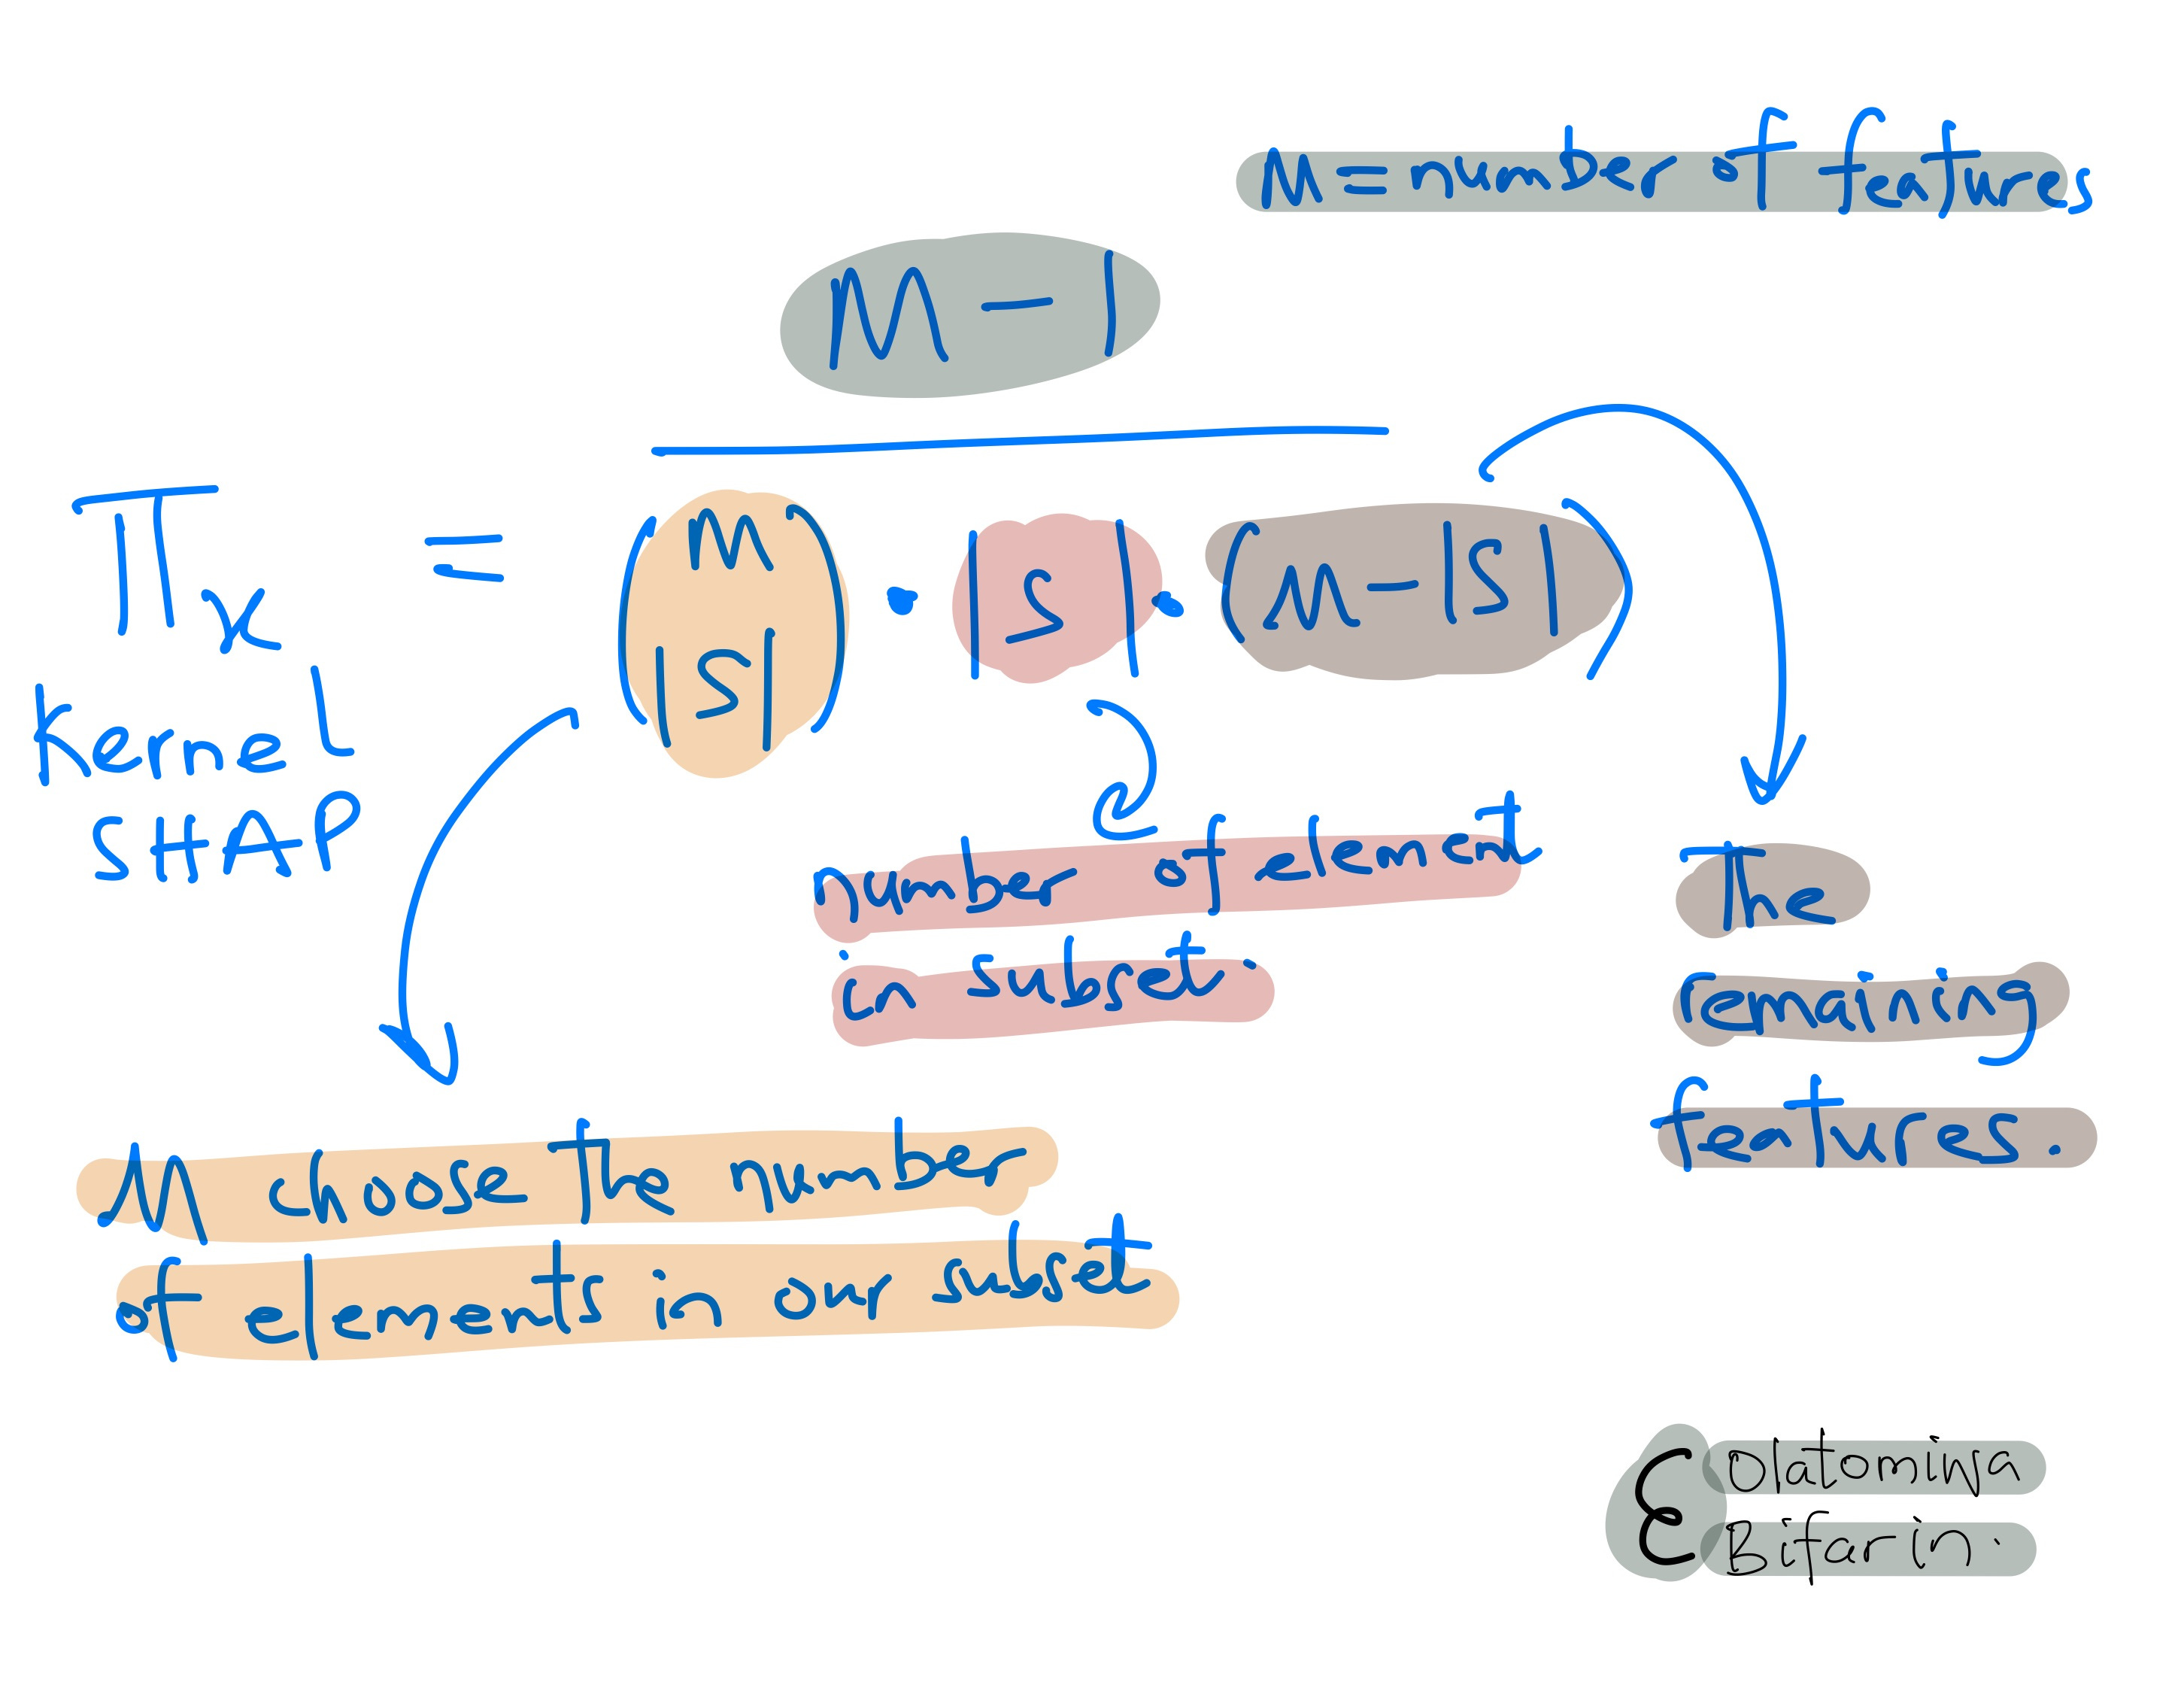 M = number of features
M - 1
πx = (M |S|) • |S| • (M - |S|)
Kernel
SHAP
number of element
in subset.
The
remaining
features.
M choose the number
of elements in our subset
Olatomiwa
Bifarin.